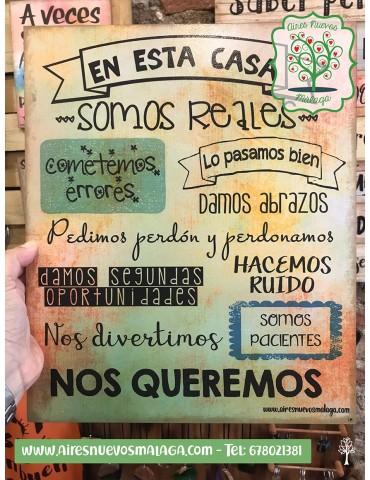 A veces
saber per
Aires Nuevos
Málaga
EN ESTA CASA
SOMOS REALES
cometemos
errores
Lo pasamos bien
DAMOS abrazos
Pedimos perdón y perdonamos
damos segundas
oportunidades
HACEMOS
RUIDO
Nos divertimos
SOMOS
PACIENTES
NOS QUEREMOS
www.airesnuevosmalaga.com
www.airesnuevosmalaga.com - Tel: 678021381